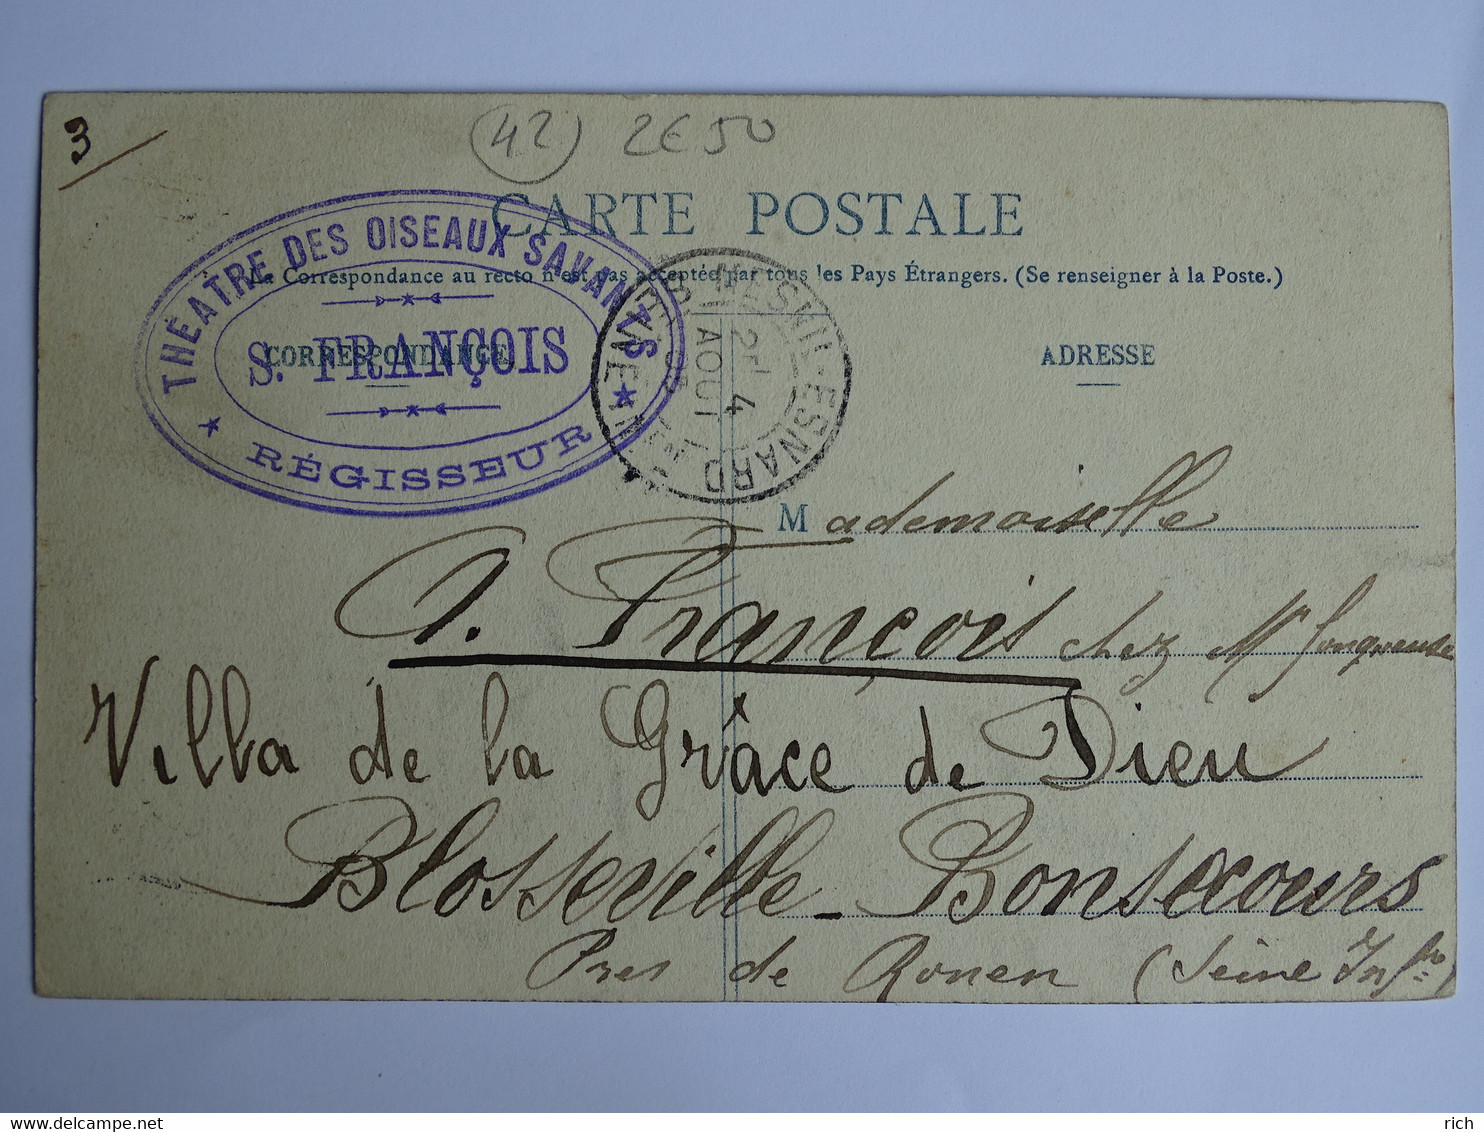 3
(42) 2€50
CARTE POSTALE
La Correspondance au recto n'est pas acceptée par tous les Pays Étrangers. (Se renseigner à la Poste.)
THÉATRE DES OISEAUX SAVANTS
S. FRANÇOIS
★ RÉGISSEUR ★
CORRESPONDANCE
ADRESSE
MESNIL-ESNARD
4
AOUT
Mademoiselle
François chez Mr
Villa de la Grâce de Dieu
Blosseville - Bonsecours
Pres de Rouen (Seine Infre)
Delcampe.net
rich